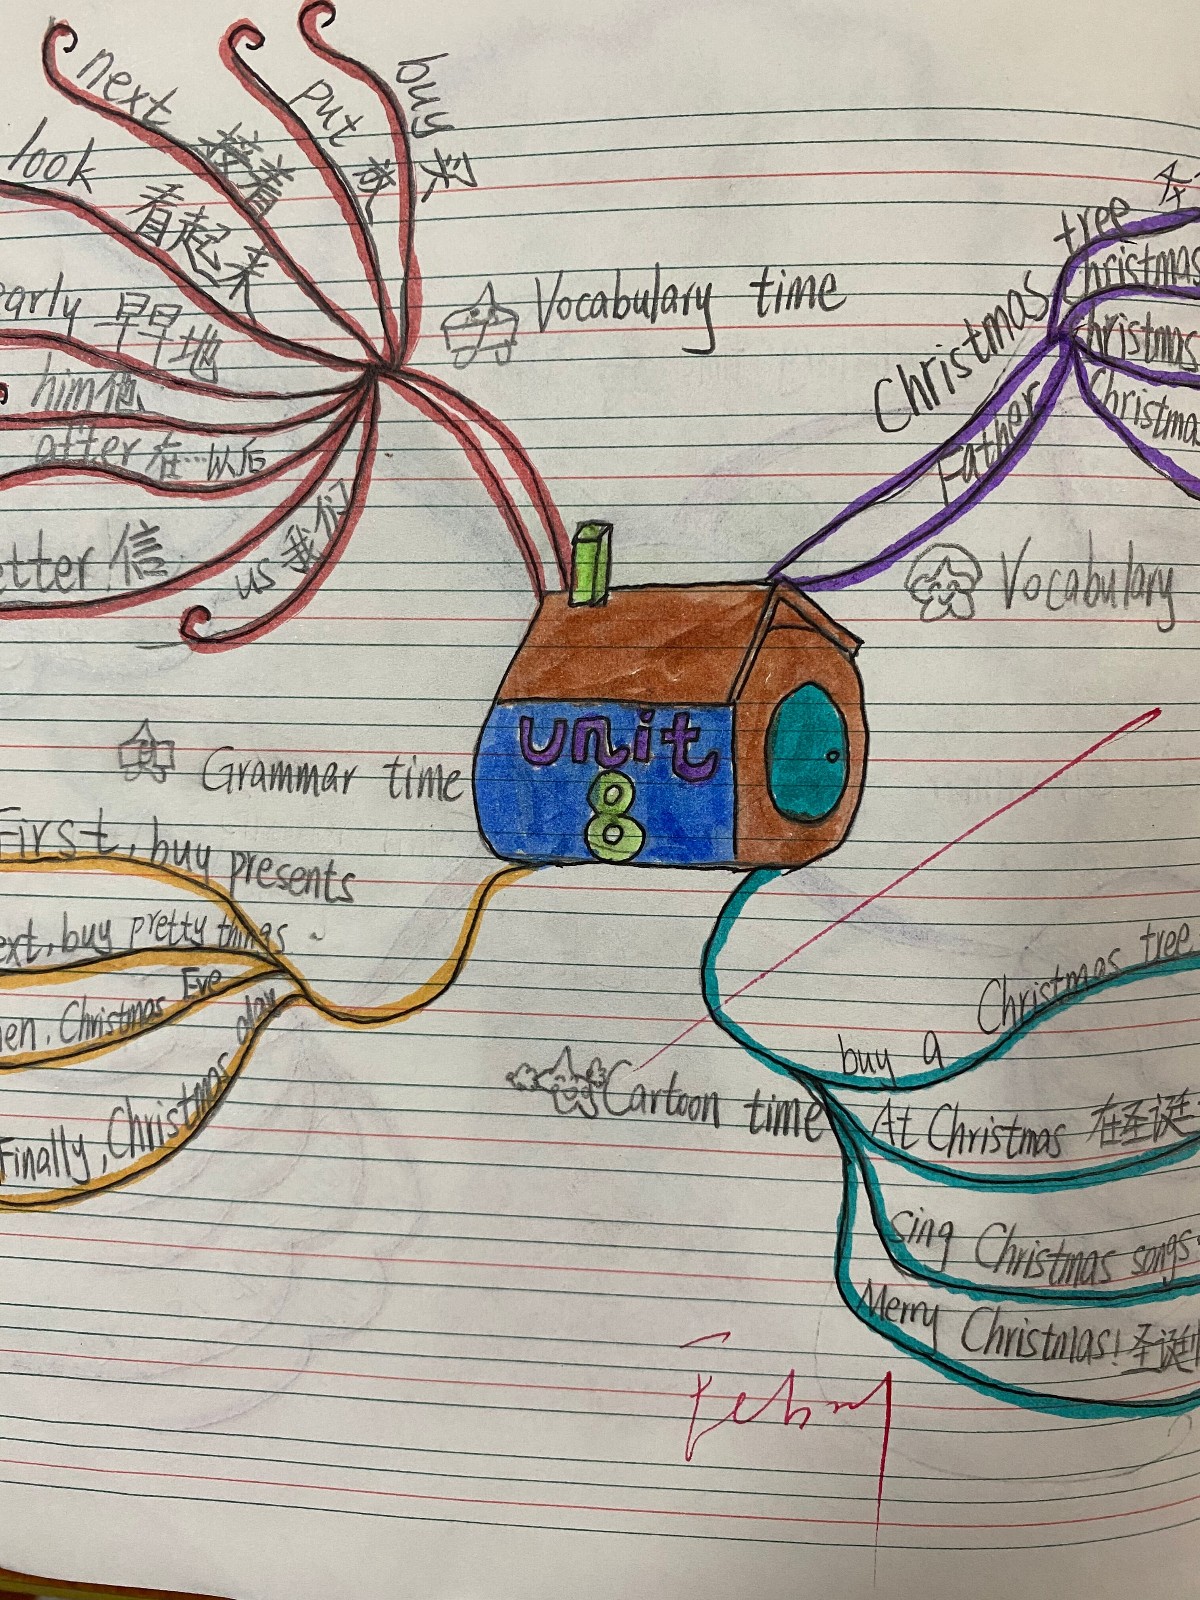 buy 买
put 放
next 接着
look 看起来
early 早早地
him 他
after 在…以后
etter 信
us 我们
Vocabulary time
Christmas
Father
tree 圣
Christmas
Christmas
Christmas
Vocabulary
unit
8
Grammar time
First, buy presents
ext, buy pretty things
hen, Christmas Eve
Finally, Christmas day
Cartoon time
buy a Christmas tree
At Christmas 在圣诞
sing Christmas songs
Merry Christmas! 圣诞